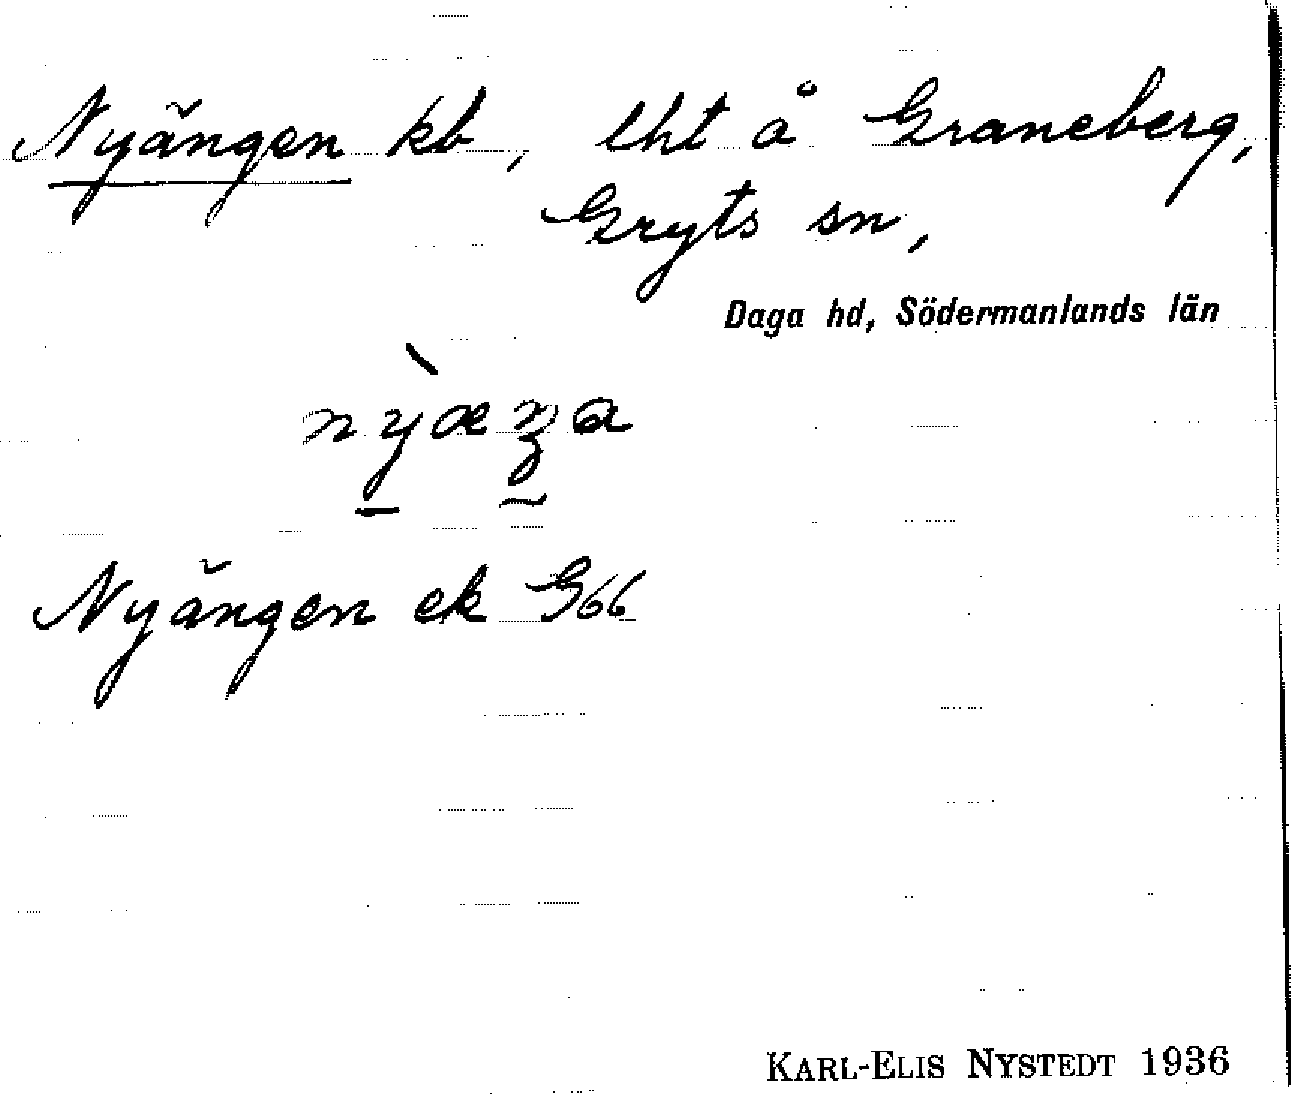 Nyängen kb, lht å Graneberg,
Gryts sn,
Daga hd, Södermanlands län
nỳæŋa
Nyängen ek G66
KARL-ELIS NYSTEDT 1936